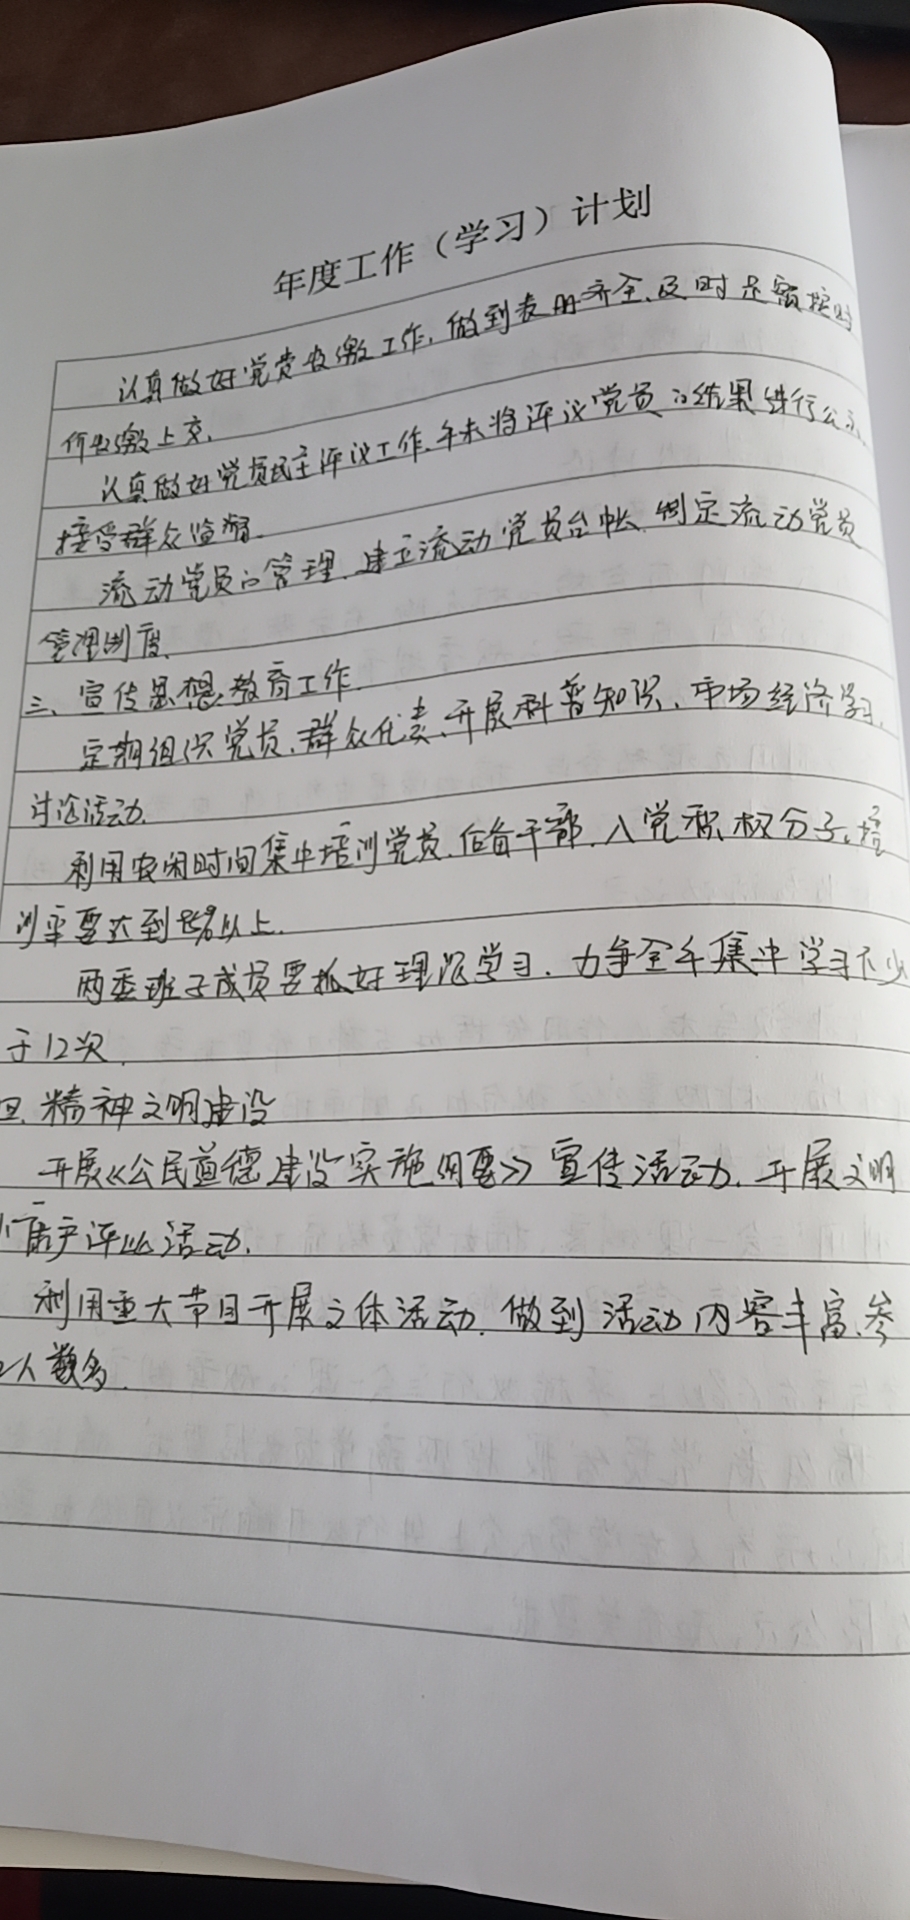 年度工作（学习）计划
认真做好党费收缴工作，做到表册齐全、及时足额按时
收缴上交。
认真做好党员民主评议工作，年末将评议党员的结果进行公示，
接受群众监督。
流动党员的管理，建立流动党员台帐，制定流动党员
管理制度。
三、宣传思想教育工作。
定期组织党员、群众代表，开展科普知识、市场经济学习，
讨论活动。
利用农闲时间集中培训党员、后备干部、入党积极分子，培
训率要达到以上。
两委班子成员要抓好理论学习，力争全年集中学习不少
于12次。
四、精神文明建设
开展《公民道德建设实施纲要》宣传活动，开展文明
户评比活动。
利用重大节日开展文体活动，做到活动内容丰富、参
人数多。